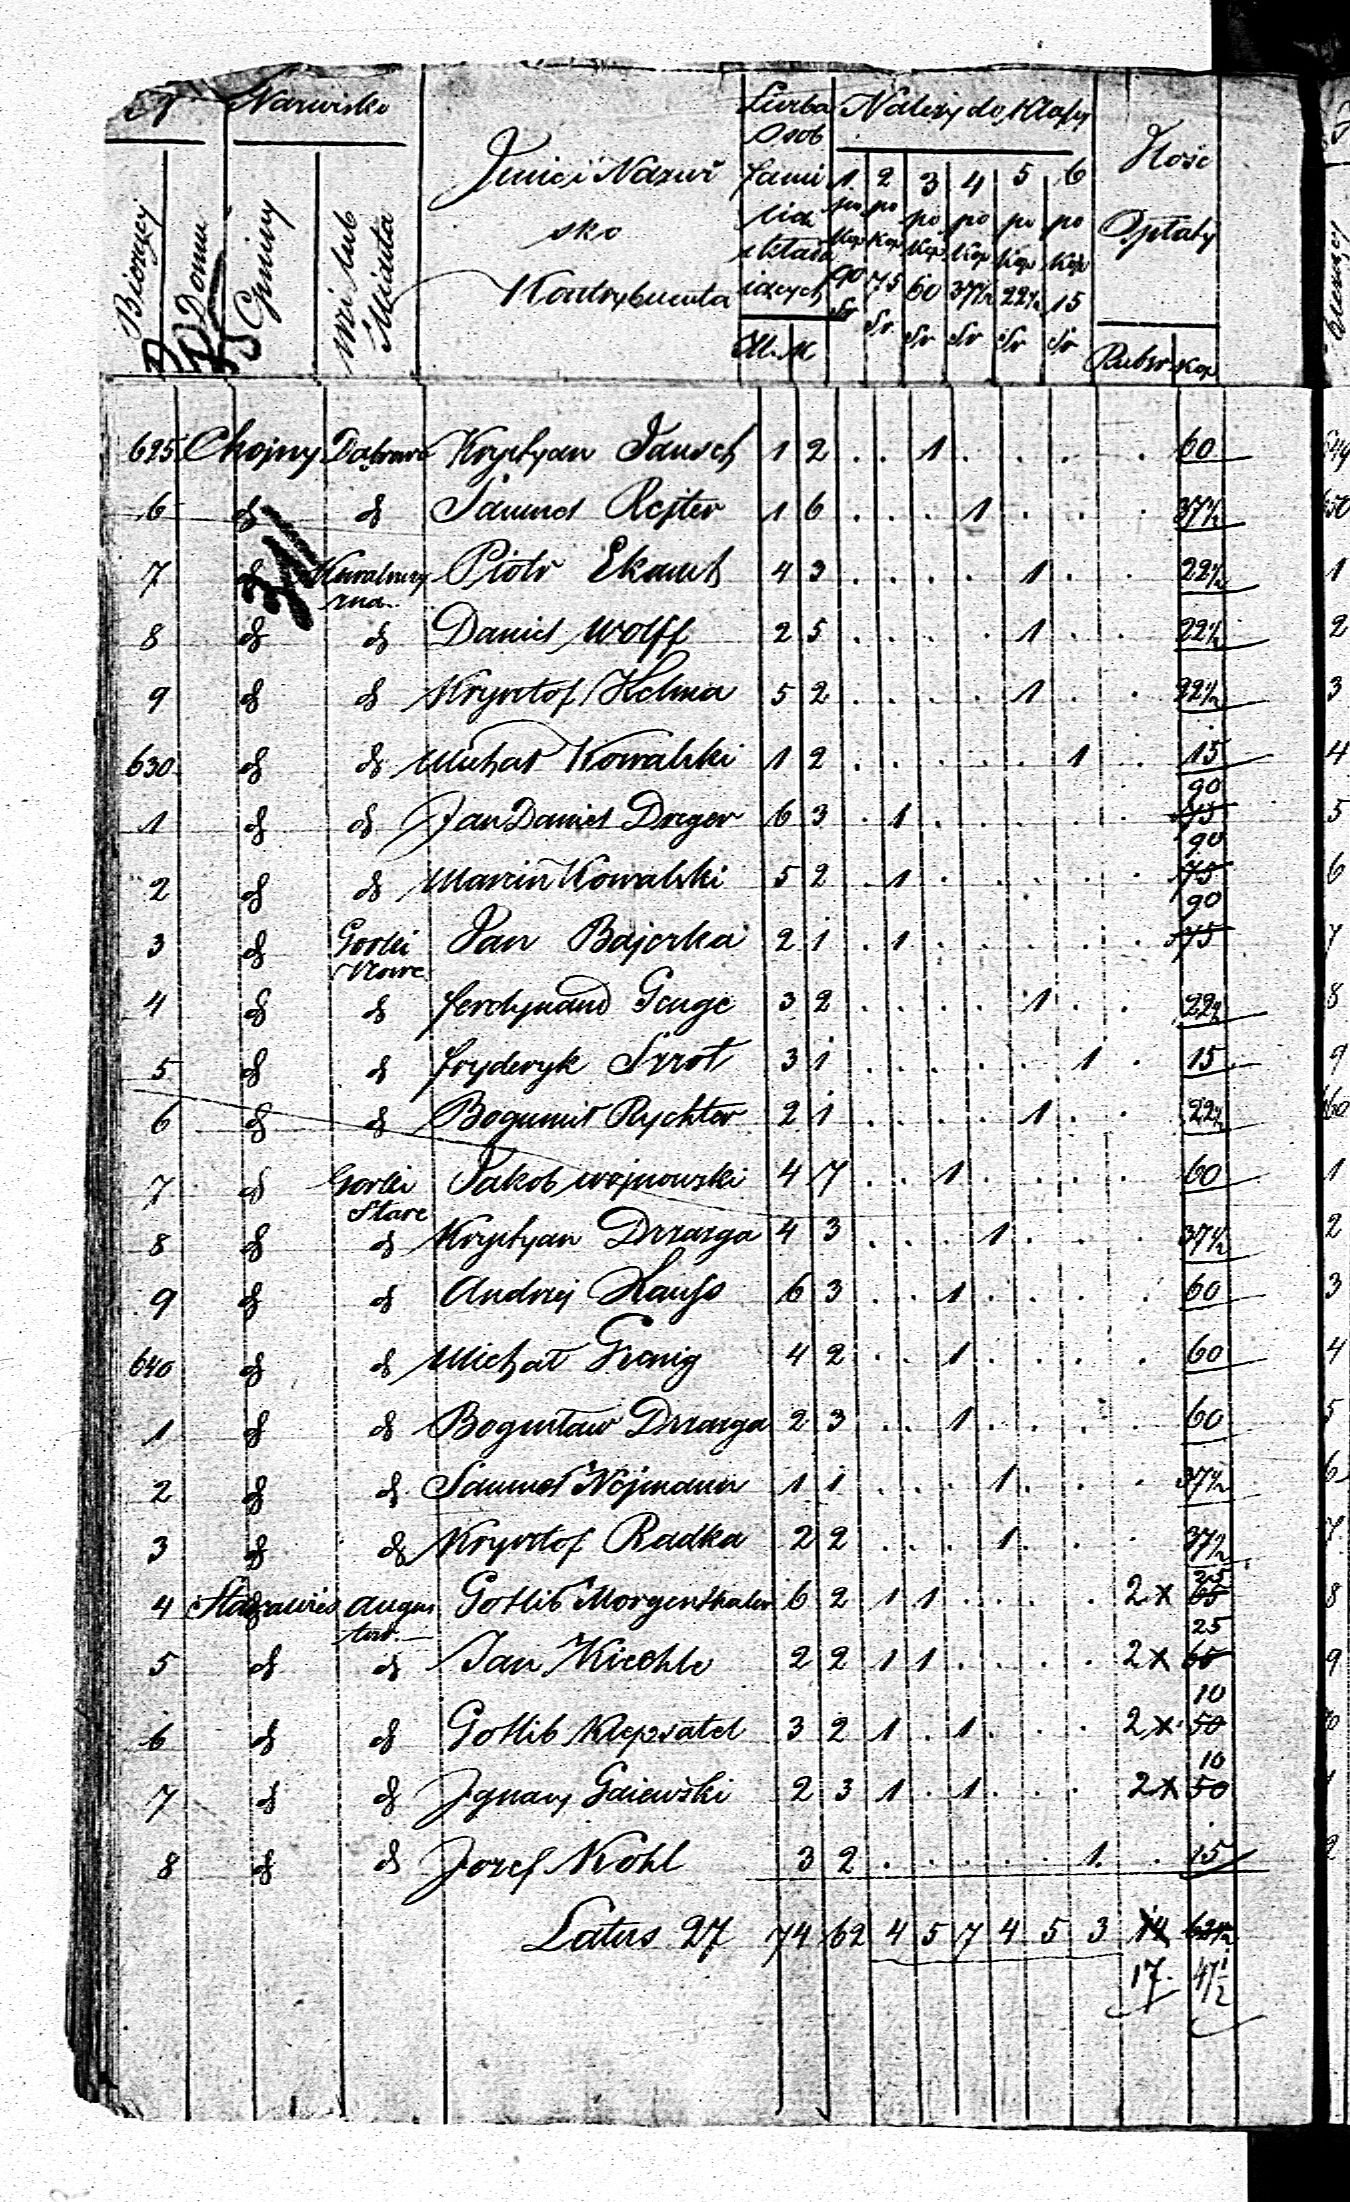 Nazwisko
Imie i Nazwi
sko
Kontrybuenta
Liczba
Osob
fami
lia
składa
iących
M. K
Należy do Klassy
1 2 3 4 5 6
po po po po po po
Kop Kop Kop Kop Kop Kop
90 75 60 37½ 22½ 15
Sr Sr Sr Sr Sr Sr
Ilość
Opłaty
Rubsr Kop
Bieżący
Domu
Gminy
wsi lub
Miasta
625 Chojny Dąbrowa Krystyan Jausch 1 2 . . 1 . . . . 60
6 d d Samuel Rejter 1 6 . . . 1 . . . 37½
7 d Piotr Ekamt 4 3 . . . . 1 . . 22½
8 d d Daniel Wolff 2 5 . . . . 1 . . 22½
9 d d Krysztof Helma 5 2 . . . . 1 . . 22½
630 d d Michał Kowalski 1 2 . . . . . 1 . 15
90
1 d d Jan Daniel Dreger 6 3 . 1 . . . . . 75
90
2 d d Marcin Kowalski 5 2 . 1 . . . . . 75
90
3 d Gorki Jan Bajerka 2 1 . 1 . . . . . 75
Nowe
4 d d Ferdynand Genge 3 2 . . . . 1 . . 22½
5 d d Fryderyk Szrot 3 1 . . . . . 1 . 15
6 d d Bogumił Rychter 2 1 . . . . 1 . . 22½
7 d Gorki Jakob Wojnowski 4 7 . . 1 . . . . 60
Stare
8 d d Krystyan Drzazga 4 3 . . . 1 . . . 37½
9 d d Andrzej Hauss 6 3 . . 1 . . . . 60
640 d d Michał Grenig 4 2 . . 1 . . . . 60
1 d d Bogusław Drzazga 2 3 . . 1 . . . . 60
2 d d Samuel Nejmann 1 1 . . . 1 . . . 37½
3 d d Krysztof Radka 2 2 . . . 1 . . . 37½
25
4 Starawieś Augus Gotlib Morgenthaler 6 2 1 1 . . . . 2 x 65
tow
25
5 d d Jan Kiechle 2 2 1 1 . . . . 2 x 65
10
6 d d Gotlib Klepsatel 3 2 1 . 1 . . . 2 x 50
10
7 d d Ignacy Gaiewski 2 3 1 . 1 . . . 2 x 50
8 d d Jozef Kohl 3 2 . . . . . 1 . 15
Latus 27 74 62 4 5 7 4 5 3 14 62½
17. 47½